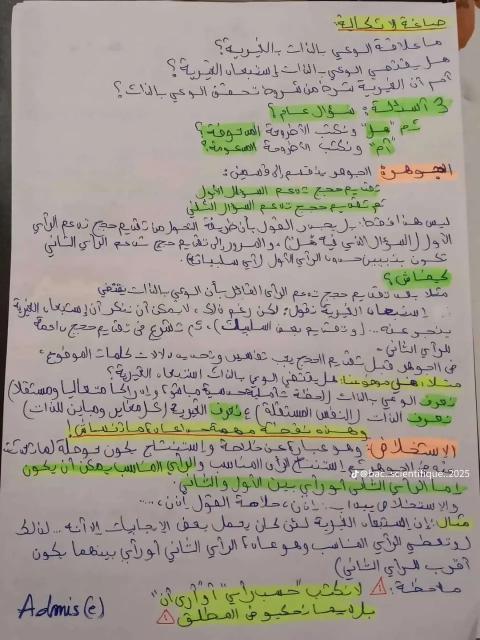 صياغة الإشكالية:
ما علاقة الوعي بالذات بالغيرية؟
هل يقتضي الوعي بالذات إستبعاد الغيرية؟
أم أن الغيرية شرط من شروط تحقق الوعي بالذات؟
3 أسئلة: سؤال عام؟
ثم "هل" ونكتب الأطروحة المدحوضة؟
"أم" ونكتب الأطروحة المدعومة؟
الجوهر: الجوهر ينقسم إلى قسمين:
تقديم حجج تدعم السؤال الأول
ثم تقديم حجج تدعم السؤال الثاني
ليس هذا فقط: بل يجدر القول بأن طريقة التحول من تقديم حجج تدعم الرأي
الأول (السؤال الذي فيه هل)، والمرور إلى تقديم حجج تدعم الرأي الثاني
تكون بتبيين حدود الرأي الأول (أي سلبياته).
كيفاش؟
مثلا بعد تقديم حجج تدعم الرأي القائل بأن الوعي بالذات يقتضي
إستبعاد الغيرية نقول: لكن رغم ذلك، لا يمكن أن ننكر أن إستبعاد الغيرية
ينجر عنه... (وتقديم بعض السلبيات)، ثم نشرع في تقديم حجج داعمة
للرأي الثاني.
في الجوهر قبل تقديم الحجج يجب تفسير وتحديد دلالات كلمات الموضوع،
مثلا: هل يقتضي الوعي بالذات استبعاد الغيرية؟
نعرف الوعي بالذات (لحظة مباشرة و إدراكا متعاليا ومستقلا)
نعرف الذات (النفس المستقلة) ونعرف الغيرية (كل مغاير ومباين للذات)
وهذه نقطة مهمة
الإستخلاص: وهو عبارة عن خلاصة واستنتاج يكون
في الجوهر و إستنتاج الرأي المناسب والرأي المناسب يمكن أن يكون
إما الرأي الثاني أو رأي بين الأول والثاني.
والاستخلاص يبدأ ب: إذن، خلاصة القول إذن،....
مثال: إذن إستبعاد الغيرية لئن كان يحمل بعض الإيجابيات إلا أنه... لذلك
(ونعطي الرأي المناسب وهو عادة الرأي الثاني أو رأي بينهما يكون
أقرب للرأي الثاني)
ملاحظة: ⚠ لا نكتب "حسب رأيي" أو "أرى أن"
بل ديما نحكيو في المطلق ⚠
Admis(e)
@bac_scientifique..2025